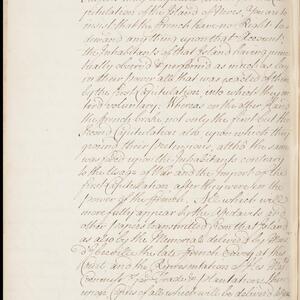 pitulation of the Island of Nevis, You are to
insist that the French have no Right to
demand any thing upon that Account;
the Inhabitants of that Island having punc-
tually observed & performed as much as lay
in their power all that was exacted of them
by the first Capitulation, into which they en-
tred voluntary: Whereas on the other side
the French broke not only the first but the
Second Capitulation also upon which they
ground their pretensions, altho' the same
was forced upon the Inhabitants contrary
to the Usage of War and the Import of the
first Capitulation after they were in the
power of the French. All which will
more fully appear by the Affidavits and
other Papers transmitted from that Island
as also by the Memorial delivered by Mons.r
d'Iberville the late French Envoy at this
Court and the Representation of His Ma.ts
Commiss.rs for Trade & Plantations there-
upon Copies of all which will be delivered